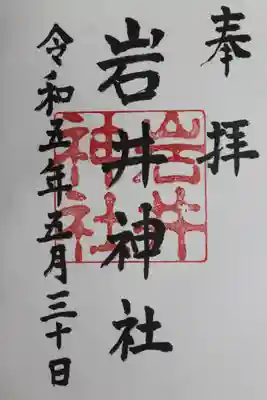 奉拝
岩井神社
令和五年五月三十日
岩井
神社